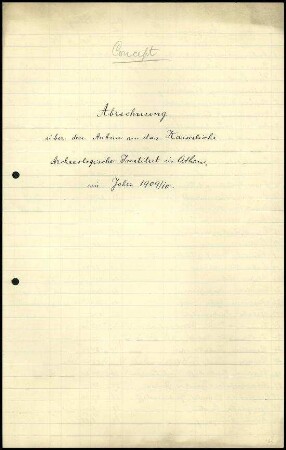 Concept
Abrechnung
über den Anbau an das Kaiserliche
Archaeologische Institut in Athen,
im Jahre 1909/10.